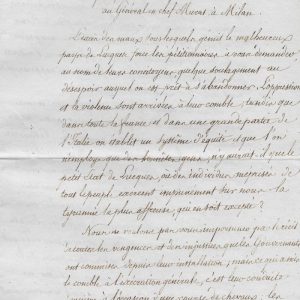 au Général en chef Murat à Milan
L'excès des maux sous lesquels gémit le malheureux
pays de Lucques force les pétitionnaires à vous demander,
au nom de leurs concitoyens quelque soulagement au
désespoir auquel on est prêt à s'abandonner. L'oppression
et la violence sont arrivées à leur comble; tandis que
dans toute la france et dans une grande partie de
l'Italie on établit un système d'équité que l'on
n'employe que des honnêtes gens, n'y aurait-il que le
petit Etat de Lucques, où des individus méprisés de
tout le peuple exercent impunément sur nous la
tyrannie la plus affreuse, qui en soit excepté?
Nous ne voulons pas vous importuner par le récit
des vengences et des injustices que les Gouvernants
ont commises depuis leur installation; mais ce qui a mis
le comble à l'exécration générale, c'est leur conduite
à l'occasion d'une remonte de chevaux